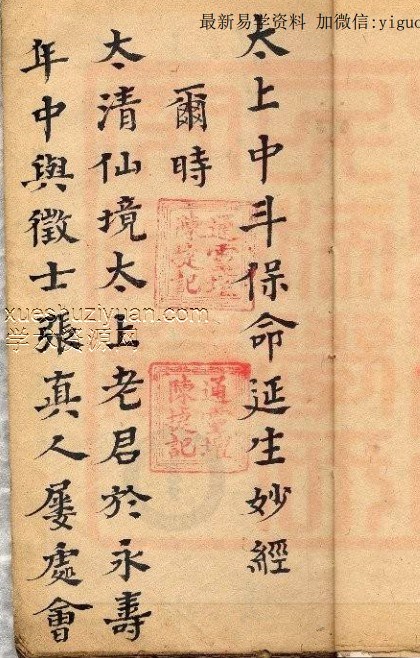 最新易学资料 加微信:yiguo
太上中斗保命延生妙經
爾時
太清仙境太上老君於永壽
年中與徵士張真人屢處會
通雲壇
xueshuziyuan.com
学术资源网